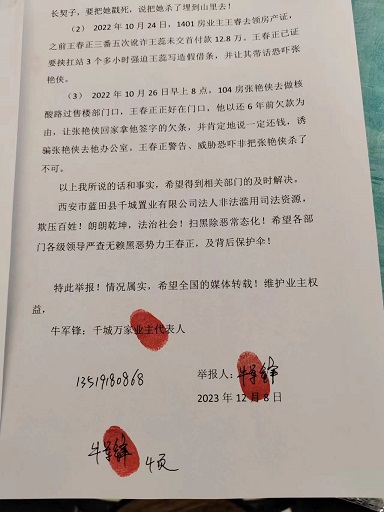 长契子，要把她戳死，说把她杀了埋到山里去！
（2） 2022 年 10 月 24 日，1401 房业主王睿去领房产证，
之前王春正三番五次说诈王蕊未交首付款 12.8 万。王春正已证
要挟扛站 3 个多小时强迫王蕊写造假借条，并让其带话恐吓张
艳侠。
（3） 2022 年 10 月 26 日早上 8 点，104 房张艳侠去做核
酸路过售楼部门口，王春正正好在门口，他以还 6 年前欠款为
由，让张艳侠回家拿他签字的欠条，并肯定地说一定还钱，诱
骗张艳侠去他办公室。王春正警告、威胁恐吓非把张艳侠杀了
不可。
以上我所说的话和事实，希望得到相关部门的及时解决。
西安市蓝田县千城置业有限公司法人非法滥用司法资源，
欺压百姓！朗朗乾坤，法治社会！扫黑除恶常态化！希望各部
门各级领导严查无赖黑恶势力王春正，及背后保护伞！
特此举报！情况属实，希望全国的媒体转载！维护业主权
益，
牛军锋：千城万家业主代表人
13519180868
举报人：牛军锋
2023 年 12 月 8 日
牛军锋 4页